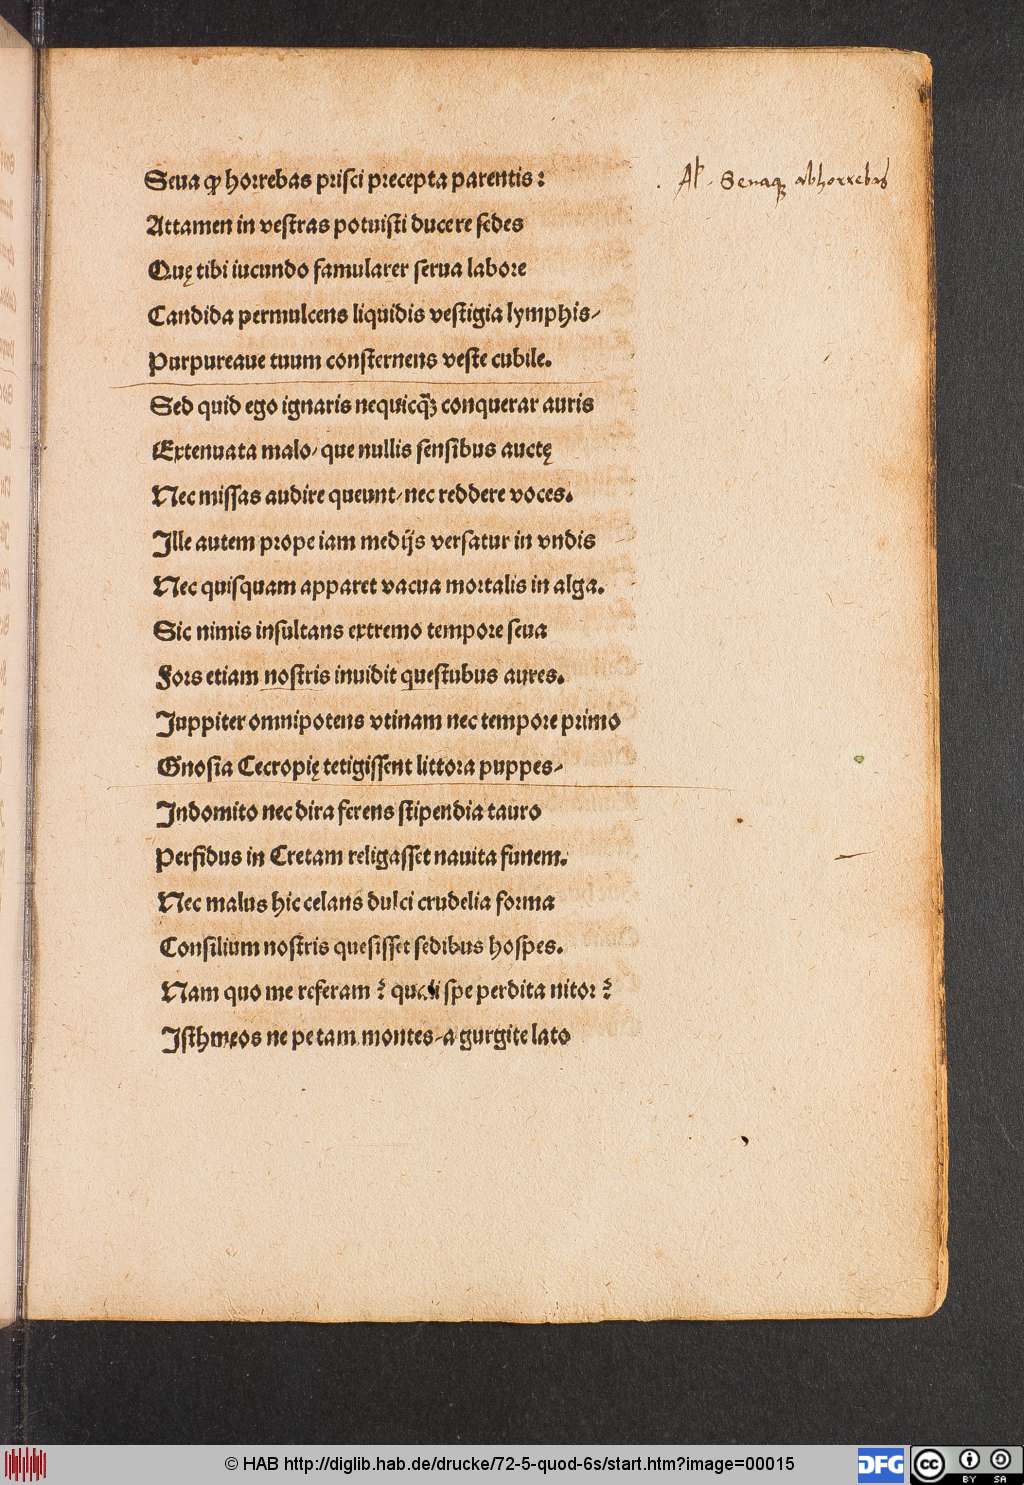 Seua ꝙ horrebas prisci precepta parentis:
Al. Seuaq; abhorrebas
Attamen in vestras potuisti ducere sedes
Quę tibi iucundo famularer serua labore
Candida permulcens liquidis vestigia lymphis/
Purpureaue tuum consternens veste cubile.
Sed quid ego ignaris nequicq̃ʒ conquerar auris
Extenuata malo/ que nullis sensibus auctę
Nec missas audire queunt/ nec reddere voces.
Ille autem prope iam medijs versatur in vndis
Nec quisquam apparet vacua mortalis in alga.
Sic nimis insultans extremo tempore seua
Fors etiam nostris inuidit questubus aures.
Juppiter omnipotens vtinam nec tempore primo
Gnosia Cecropię tetigissent littora puppes/
Indomito nec dira ferens stipendia tauro
Perfidus in Cretam religasset nauita funem.
Nec malus hic celans dulci crudelia forma
Consilium nostris quesisset sedibus hospes.
Nam quo me referam? quali spe perdita nitor?
Isthmeos ne petam montes/ a gurgite lato
© HAB http://diglib.hab.de/drucke/72-5-quod-6s/start.htm?image=00015
DFG
cc
BY SA